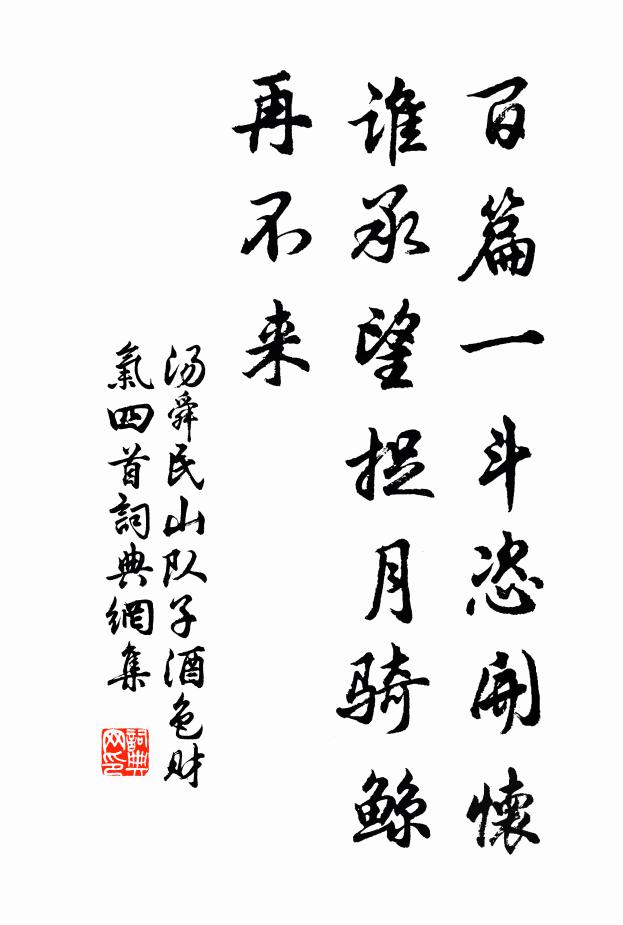 百篇一斗恣開懷
谁承望捉月骑鲸
再不来
汤舜民山队子酒色财
氣四首詞典網集
詞典网印